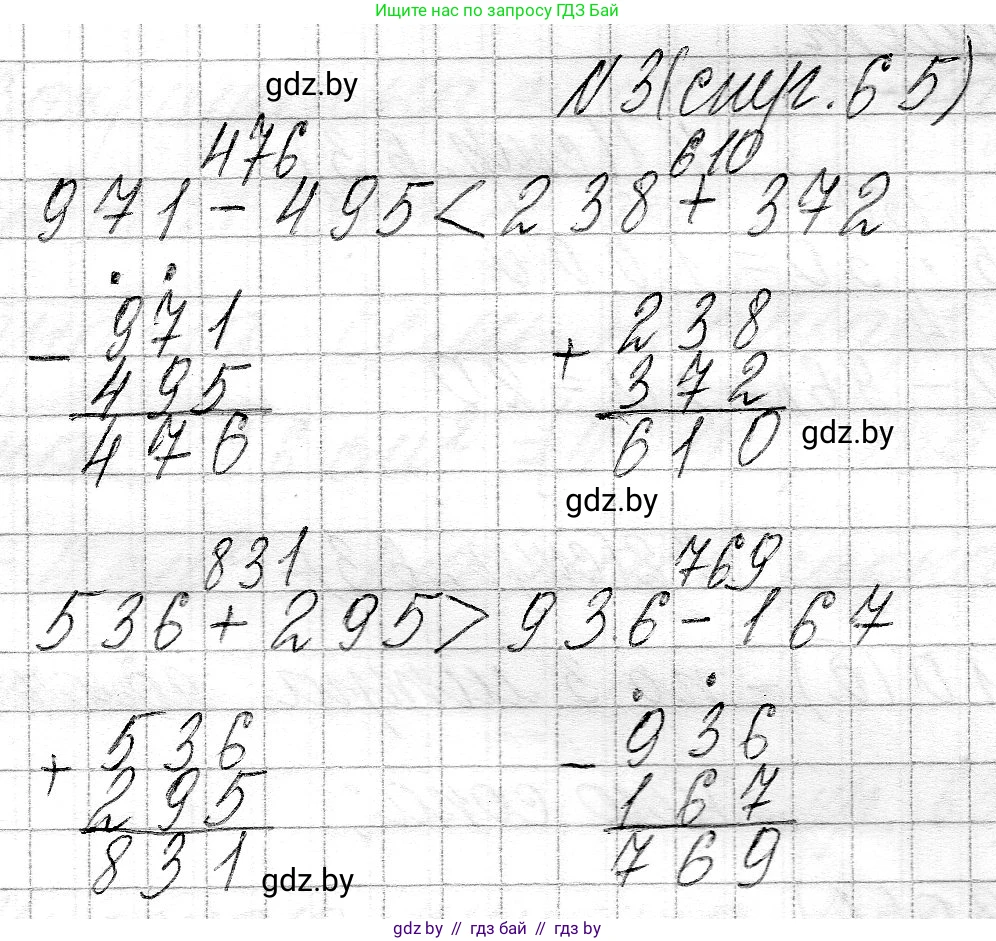 Ищите нас по запросу ГДЗ Бай
gdz.by
N 3 (стр. 65)
476 610
971 - 495 < 238 + 372
- 971 + 238
495 372
476 610
gdz.by
gdz.by
831 769
536 + 295 > 936 - 167
+ 536 - 936
295 167
831 769
gdz.by
gdz.by // гдз бай // гдз by